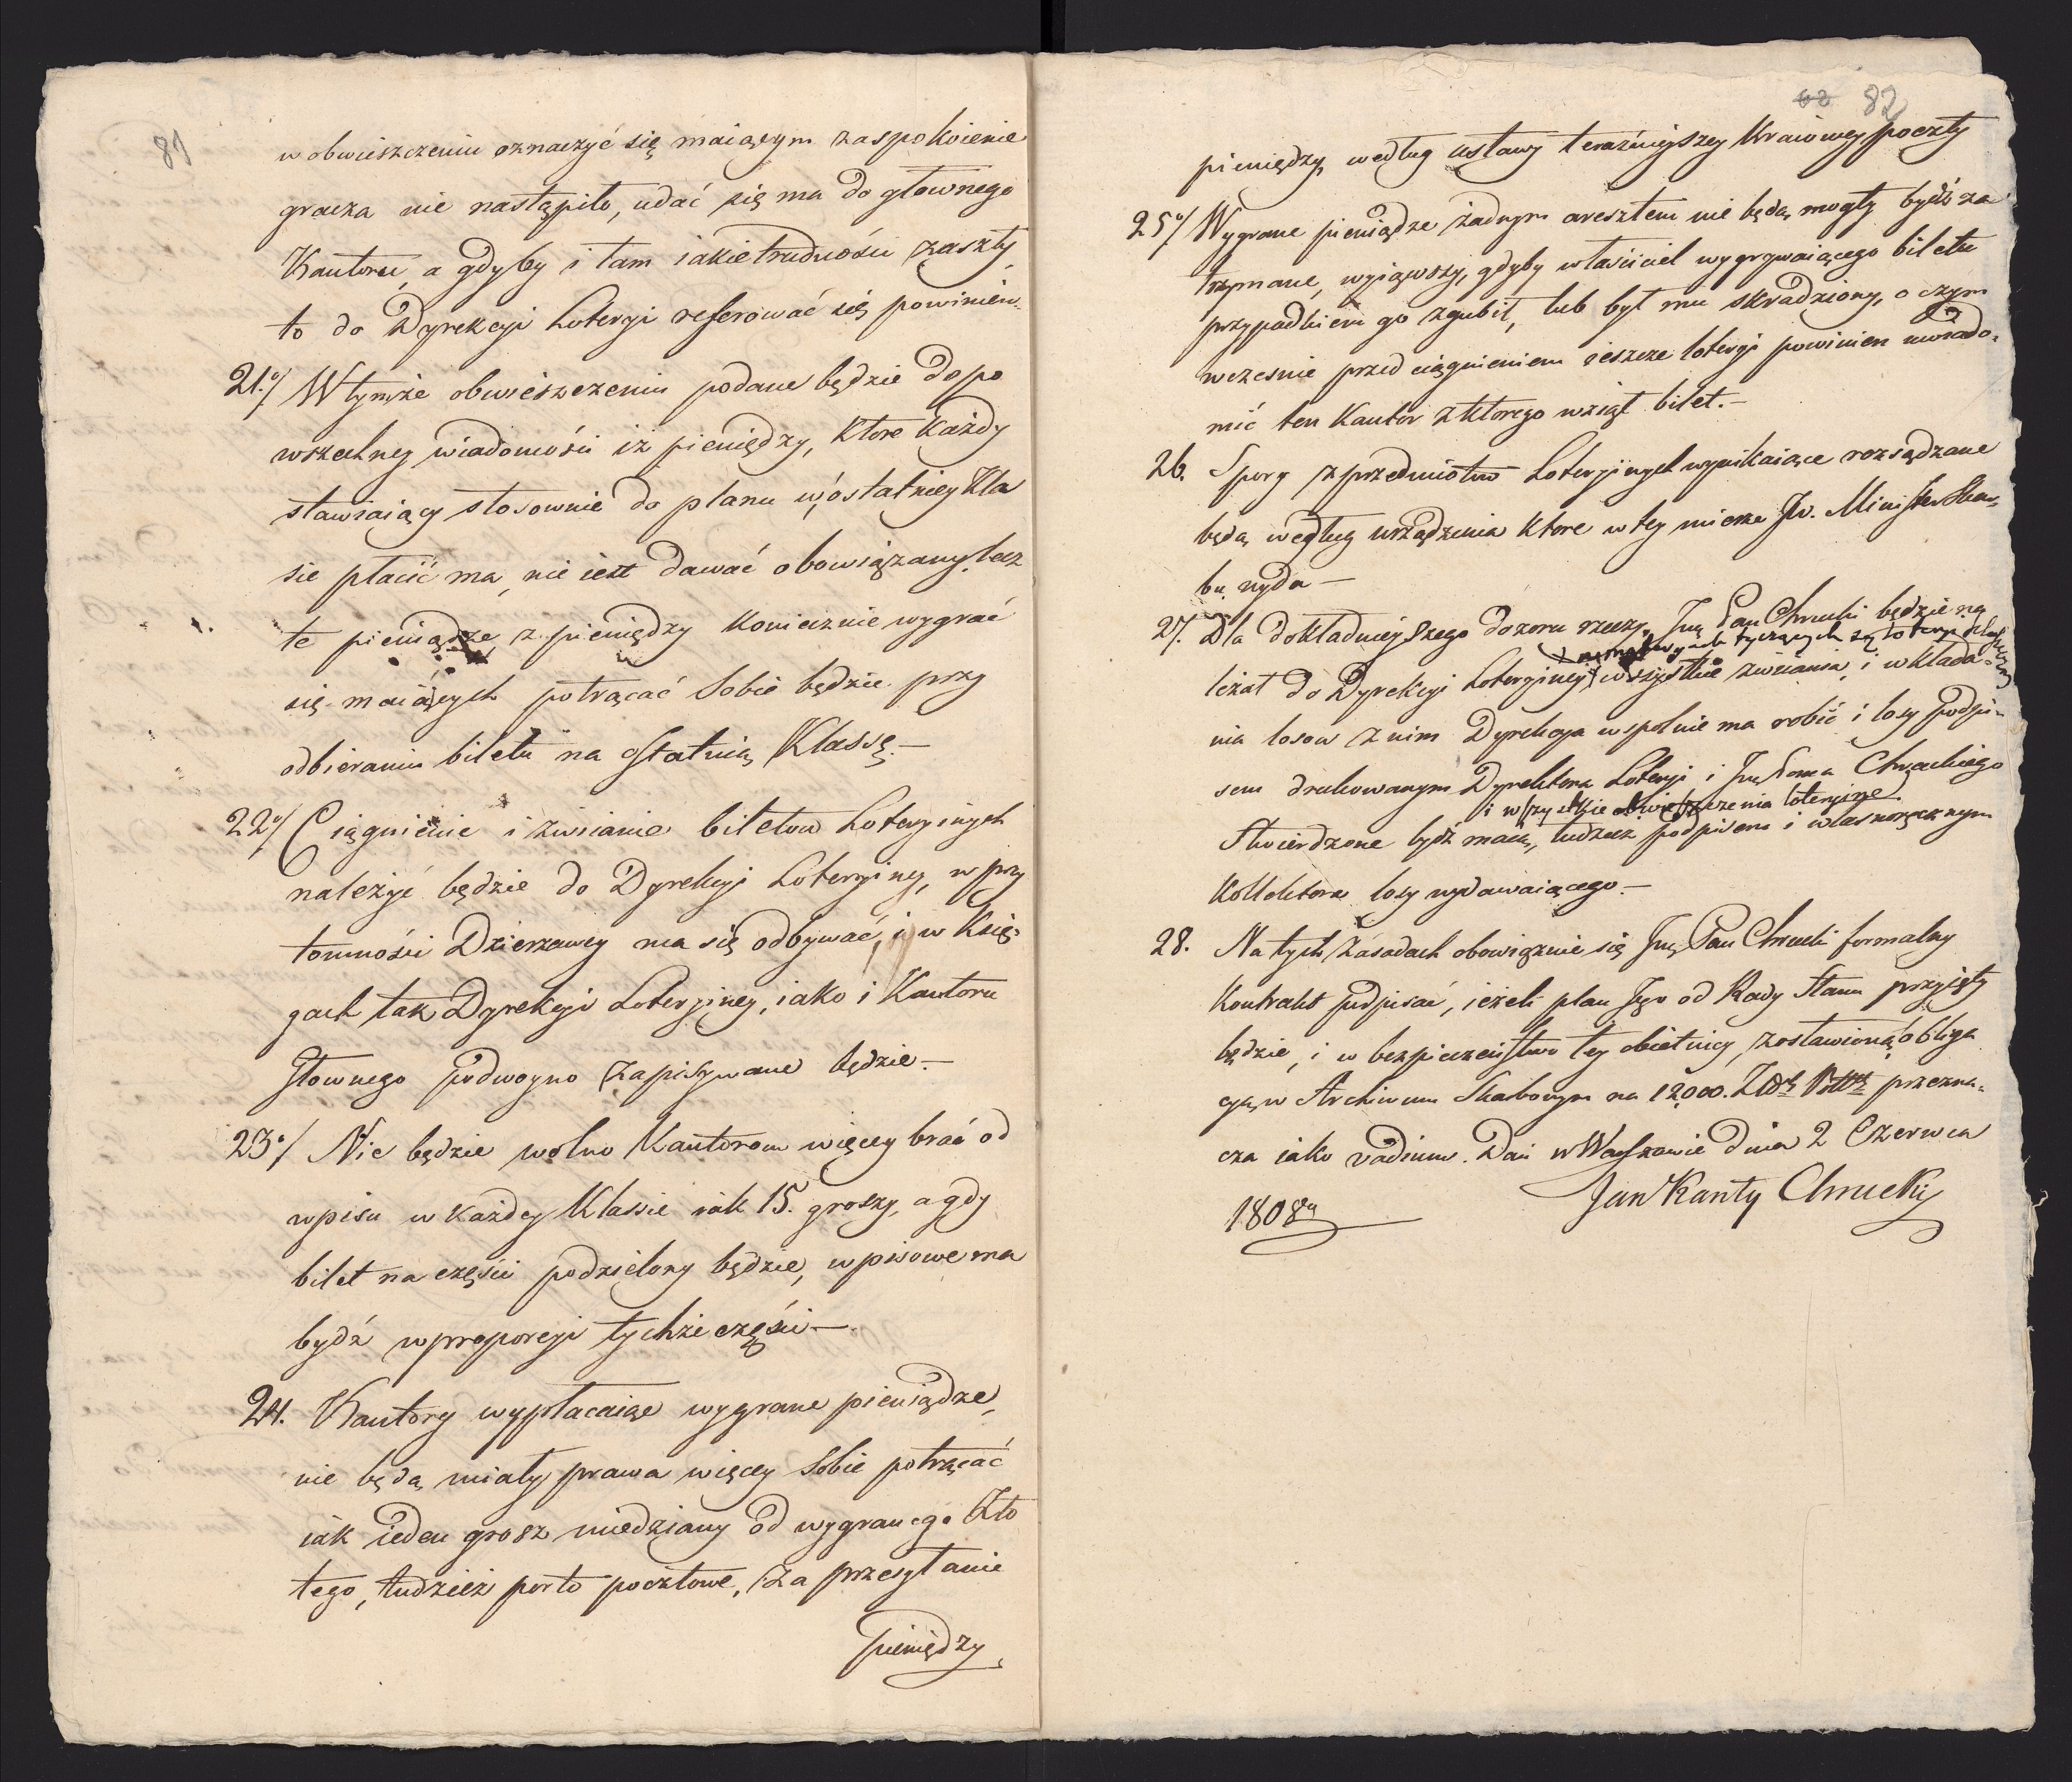 81
w obwieszczeniu oznaczyć się maiącym zaspokoienie
gracza nie nastąpiło, udać się ma do głownego
Kantoru, a gdyby i tam iakie trudności zaszły
to do Dyrekcyi Loteryi referować się powinien.
21.o/ W tymże obwieszczeniu podane będzie do po
wszechney wiadomości iż pieniędzy, ktore każdy
stawiaiący stosownie do planu w ostatniey Kla
sie płacić ma, nie iest dawać obowiązany, lecz
te pieniądze, z pieniędzy koniecznie wygrać
się maiących potrącać sobie będzie przy
odbieraniu biletu na ostatnią Klassę.—
22o/ Ciągnienie i zwiianie biletow Loteryinych
należyć będzie do Dyrekcyi Loteryiney, w przy
tomności Dzierżawcy ma się odbywać, i w Księ-
gach tak Dyrekcyi Loteryiney, iako i Kantoru
Głownego podwoyno zapisywane będzie.—
23o/ Nie będzie wolno Kantorom więcey brać od
wpisu w każdey Klassie iak 15. groszy, a gdy
bilet na części podzielony będzie, wpisowe ma
bydź w proporcyi tychże części—
24. Kantory wypłacaiąc wygrane pieniądze,
nie będą miały prawa więcey sobie potrącać
iak ieden grosz miedziany od wygranego Zło
tego, tudzież porto pocztowe, za przesyłanie
pieniędzy
62 82
pieniędzy, według ustawy teraźnieyszey Kraiowey poczty
25o/ Wygrane pieniądze żadnym aresztem nie będą mogły bydź za
trzymane, wyiąwszy, gdyby właściciel wygrywaiącego biletu
przypadkiem go zgubił, lub był mu skradziony, o czym
wczesnie przed ciągnieniem ieszcze loteryi powinien uwiado-
mić ten Kantor z ktorego wziął bilet.—
26. Spory z przedmiotow Loteryinych wynikaiące rozsądzane
będą według urządzenia ktore w tey mierze Jw. Minister Skar-
bu wyda—
27. Dla dokładnieyszego dozoru rzeczy, Pan Chrucki będzie na
tyczących się loteryi
leżał do Dyrekcyi Loteryiney, wszystkie zwiiania, i wkłada-
nia losow z nim Dyrekcya wspolnie ma robić i losy podpi-
sem drukowanym Dyrektora Loteryi i Chruckiego
i wszystkie obwieszczenia loteryine
stwierdzone bydź maią, tudzież podpisem i własnoręcznym
Kollektora losy wydawaiącego.—
28. Na tych zasadach obowiązuie się Pan Chrucki formalny
Kontrakt podpisać, ieżeli plan Jego od Rady Stanu przyięty
będzie, i w bezpieczeństwo tey obietnicy, zostawioną obliga
cyą w Archiwum Skarbowym na 12,000. Złł. przezna-
cza iako vadium. Dan w Warszawie dnia 2 Czerwca
1808
Jan Kanty Chrucki